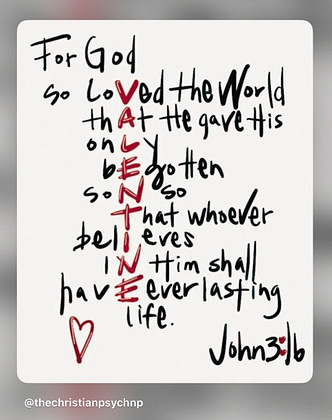 For God
so LoVed the World
thAt He gave His
onLy
bEgotten
soN so
That whoever
belIeves
IN Him shall
havE everlasting
life.
John 3:16
@thechristianpsychnp